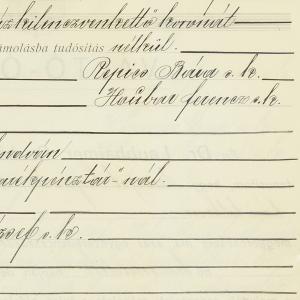 ász kilenczvenkettő koronát
számolásba tudósítás nélkül.
Repics Bára s. k.
Houbar ferencz s. k.
ndván
arékpénztár"-nál.
ózsef s. k.